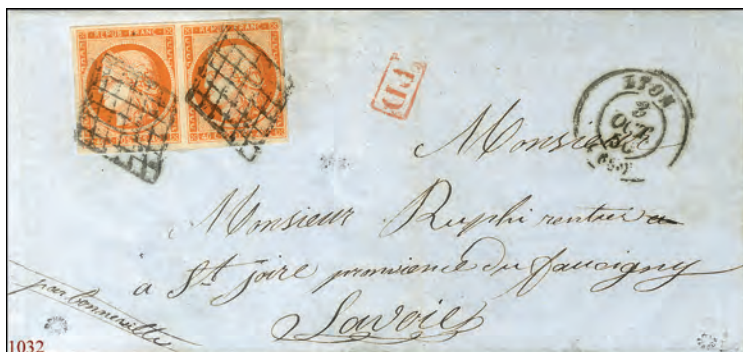 REPUB. FRANC. REPUB. FRANC.
PD
LYON
2
OCT.
50
(68)
Monsieur
Monsieur Ruphi rentier a
à St joire province du faucigny
Savoie
par bonneville
1032